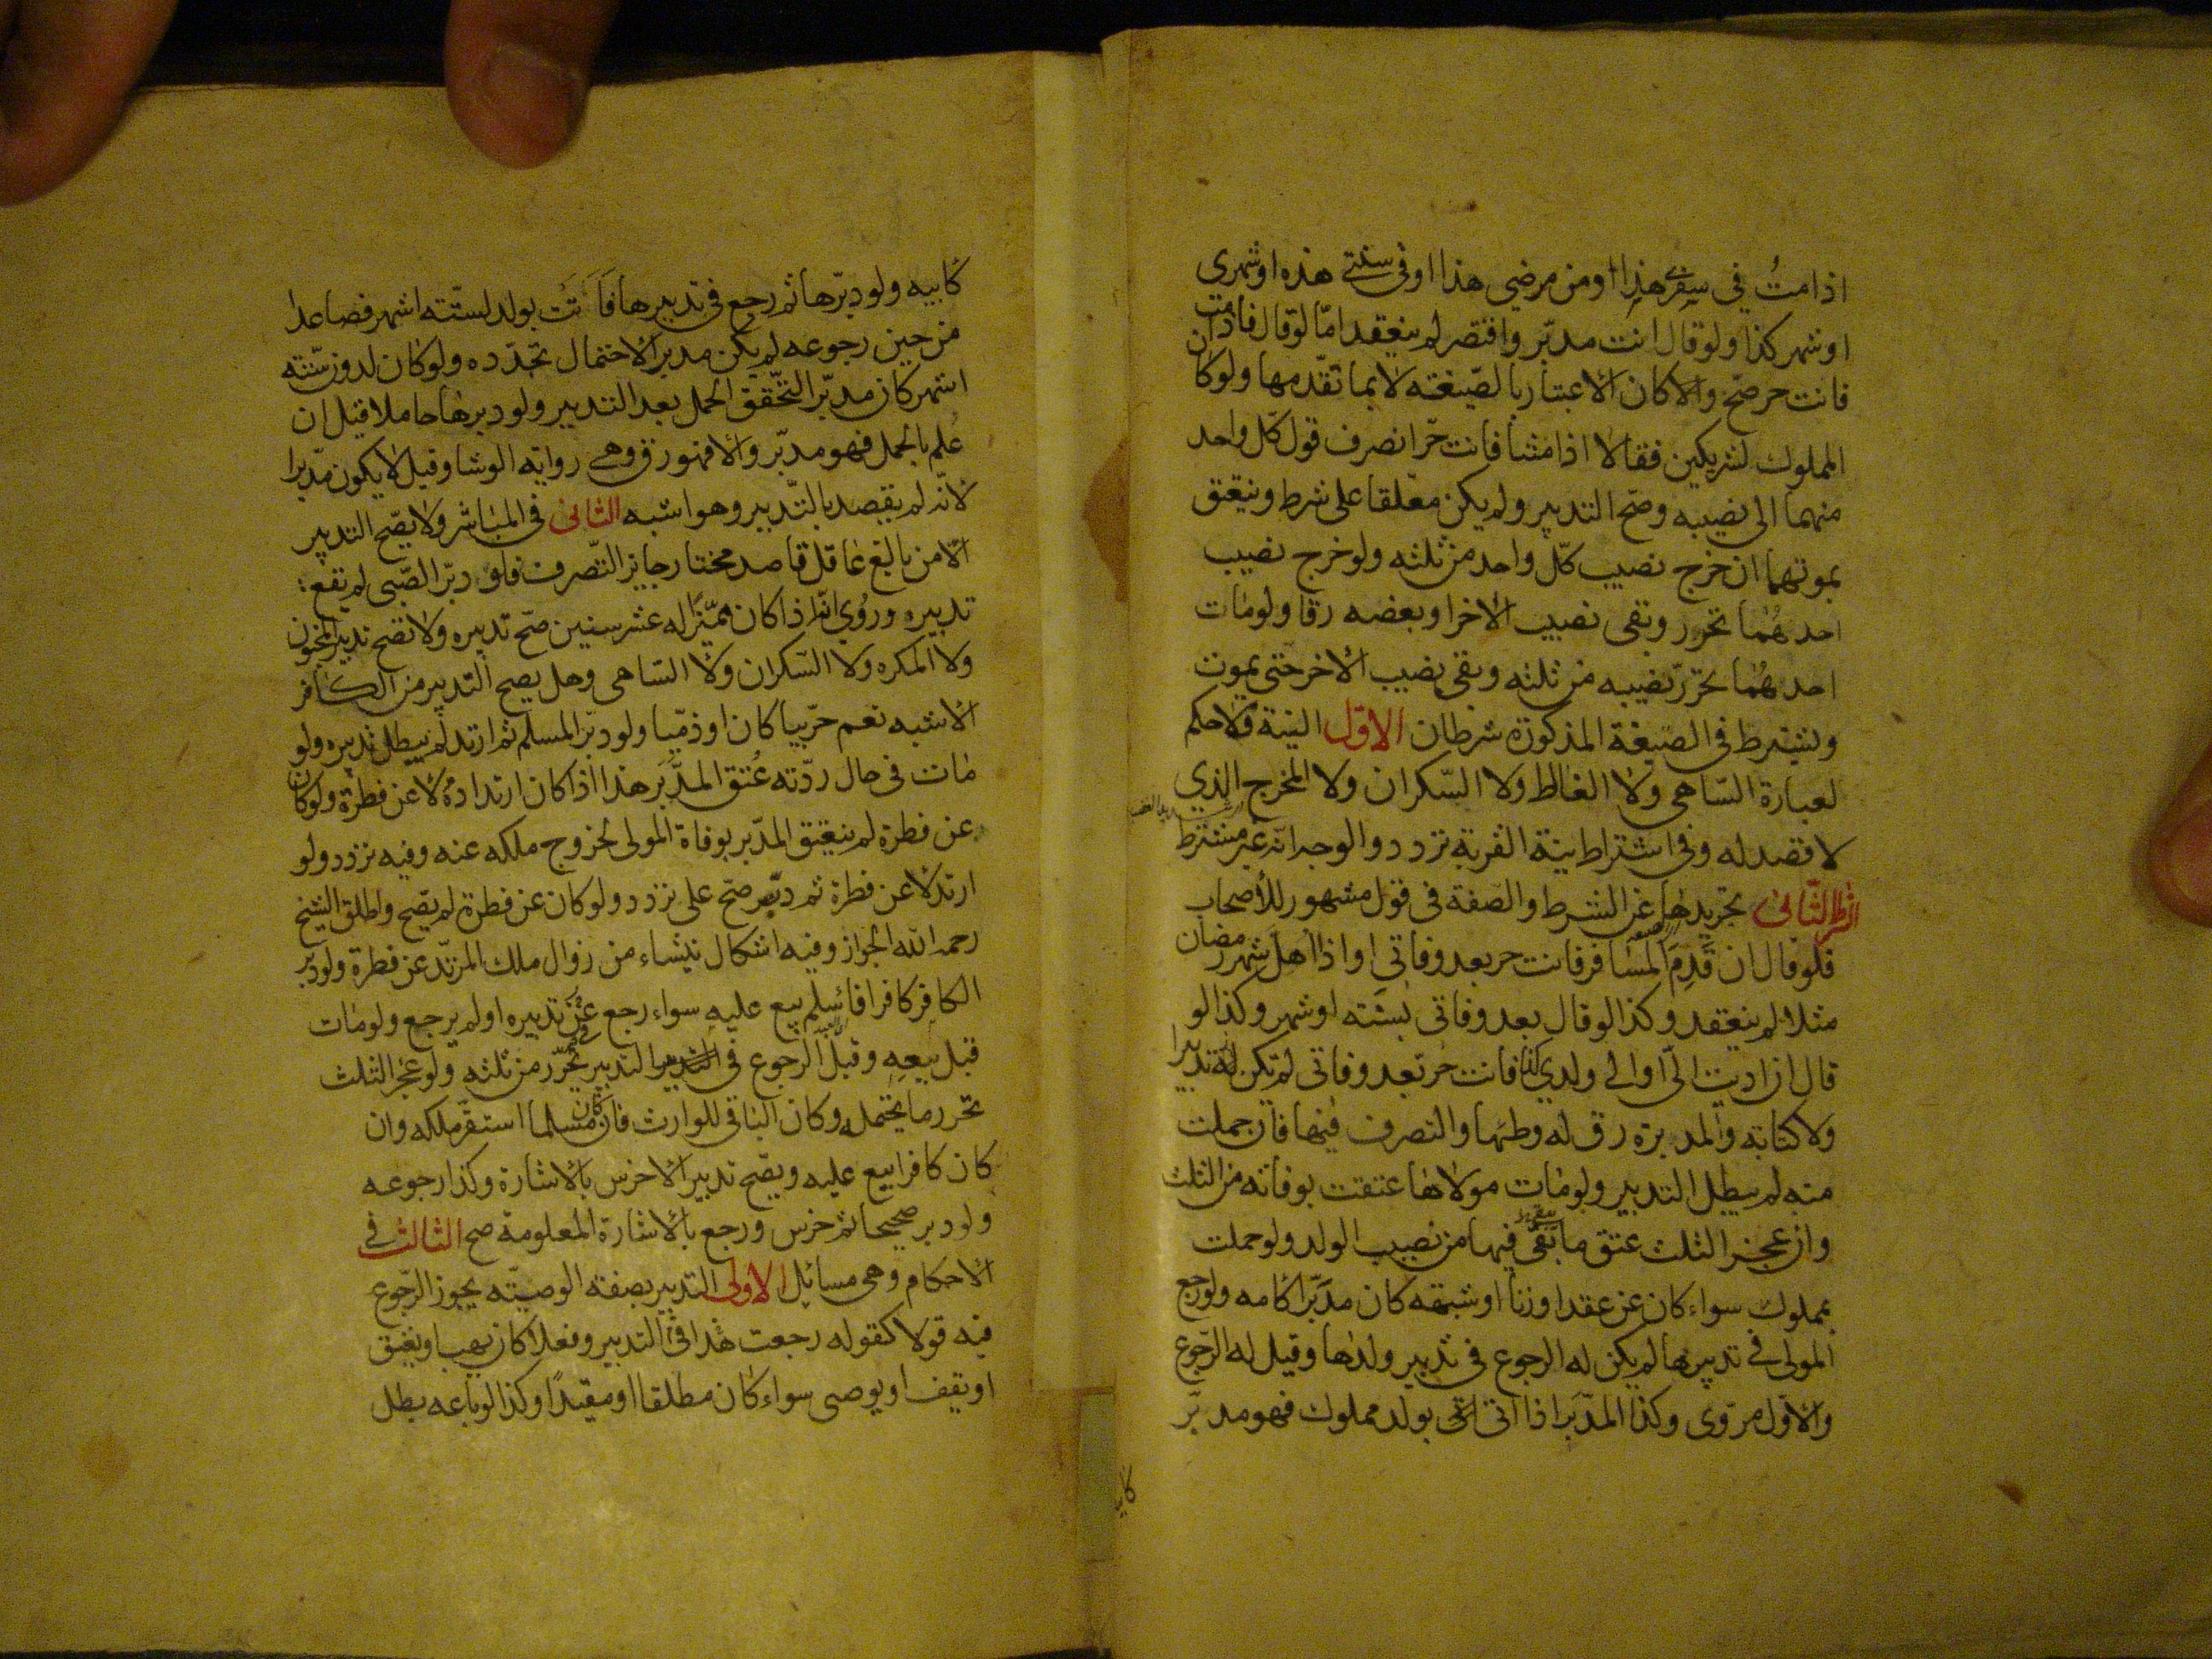 اذا متُ في سفري هذا او من مرضي هذا او في سنتي هذه او شهري
او شهر كذا ولو قال انت مدبّر واقتصر لم ينعقد امّا لو قال فاذا مت
فانت حر صحّ والا كان الاعتبار بالصّيغته لا بما تقّدمها ولو كان
المملوك لشريكين فقالا اذا متنا فانت حّر انصرف قول كلّ واحد
منهما الى نصيبه وصّح التدبير ولم يكن معلّقا على شرط وينعتق
بموتهما ان خرج نصيب كلّ واحد من ثلثه ولو خرج نصيب
احدهُما تحرر وبقى نصيب الاخر او بعضه رقا ولو مات
احدهُما تحرّر نصيبه من ثلثه وبقى نصيب الاخر حتى يموت
ويشترط في الصيغة المذكورة شرطان الاوّل النية فلا حكم
لعبارة السّاهى ولا الغالط ولا السّكران ولا المخرج الذي
لا قصد له وفى اشتراط نيّة القربة تردد والوجه انّه غير مشترط
الشرط الثّانى تجريدها عن الشرط والصّفة فى قول مشهور للأصحاب
فلو قال ان قَدِمَ المسافر فانت حر بعد وفاتى او اذا اهلّ شهر رمضان
مثلا لم ينعقد وكذا لو قال بعد وفاتى بسنته او شهر وكذا لو
قال ان اديت الىّ او الى ولدى كذا فانت حر بعد وفاتى لم تكن له تدبيرا
ولا كتابته والمدبرة رق له وطئها والتصرف فيها فان حملت
منه لم يبطل التدبير ولو مات مولاها عتقت بوفاته من الثلث
وان عجز الثلث عتق ما بقى فيها من نصيب الولد ولو حملت
بمملوك سواء كان عن عقد او زنا او شبهه كان مدبّرا كامه ولو رجع
المولى فى تدبيرها لم يكن له الرجوع فى تدبير ولدها وقيل له الرّجوع
والاوّل مروى وكذا المدّبر اذا اتى بولد مملوك فهو مدبّر
كابيه
كابيه ولو دبّرها ثم رجع فى تدبيرها فاتت بولد لستّته اشهر فصاعدا
من حين رجوعه لم يكن مدبرا لاحتمال تجدّده ولو كان لدون ستّته
اشهر كان مدبّرا لتحّقق الحمل بعد التدبير ولو دبرها حاملا قيل ان
عُلم بالحمل فهو مدبّر والا فهو رق وهى روايه الوشا وقيل لا يكون مدّبرا
لانّه لم يقصد بالتّدبير وهو اشبه الثانى فى المباشر ولا يصّح التدبير
الا من بالغ عاقل قاصد مختار جايز التّصرف فلو دبّر الصّبى لم تقع
تدبيره ورُوي انّه اذا كان مميّزا له عشر سنين صّح تدبيره ولا تصح تدبير المجنون
ولا المكره ولا السّكران ولا السّاهى وهل يصح التدبير من الكافر
الاشبه نعم حّربيا كان او ذمّيا ولو دبّر المسلم ثم ارتد لم يبطل تدبيره ولو
مات فى حال ردّته عُتق المدَّبَر هذا اذا كان ارتداده لا عن فطرة ولو كان
عن فطرة لم ينعتق المدّبر بوفاة المولى لخروج ملكه عنه وفيه تردد ولو
ارتد لا عن فطرة ثم دبّر صّح على تردد ولو كان عن فطرة لم يصّح واطلق الشيخ
رحمه الله الجواز وفيه اشكال ينشاء من زوال ملك المرتّد عن فطرة ولو دبّر
الكافر كافرا فاسلم بيع عليه سواء رجع عن تدبيره او لم يرجع ولو مات
قبل بيعه وقبل الرجوع فى التدبير تحّرر من ثلثه ولو عجز الثلث
تحرر ما يحتمله وكان الباقى للوارث فان كان مسلما استقّر ملكه وان
كان كافرا بيع عليه ويصّح تدبير الاخرس بالاشارة وكذا رجوعه
ولو دبر صحيحا ثم خرس ورجع بالاشارة المعلومة صح الثالث فى
الاحكام وهى مسائل الاولى التدبير بصفته الوصيّته يجوز الرّجوع
فيه قولا كقوله رجعت هذا فى التدبير وفعلا كان يهب او يعتق
او يقف او يوصى سواء كان مطلقا او مقيدًا وكذا لو باعه بطل